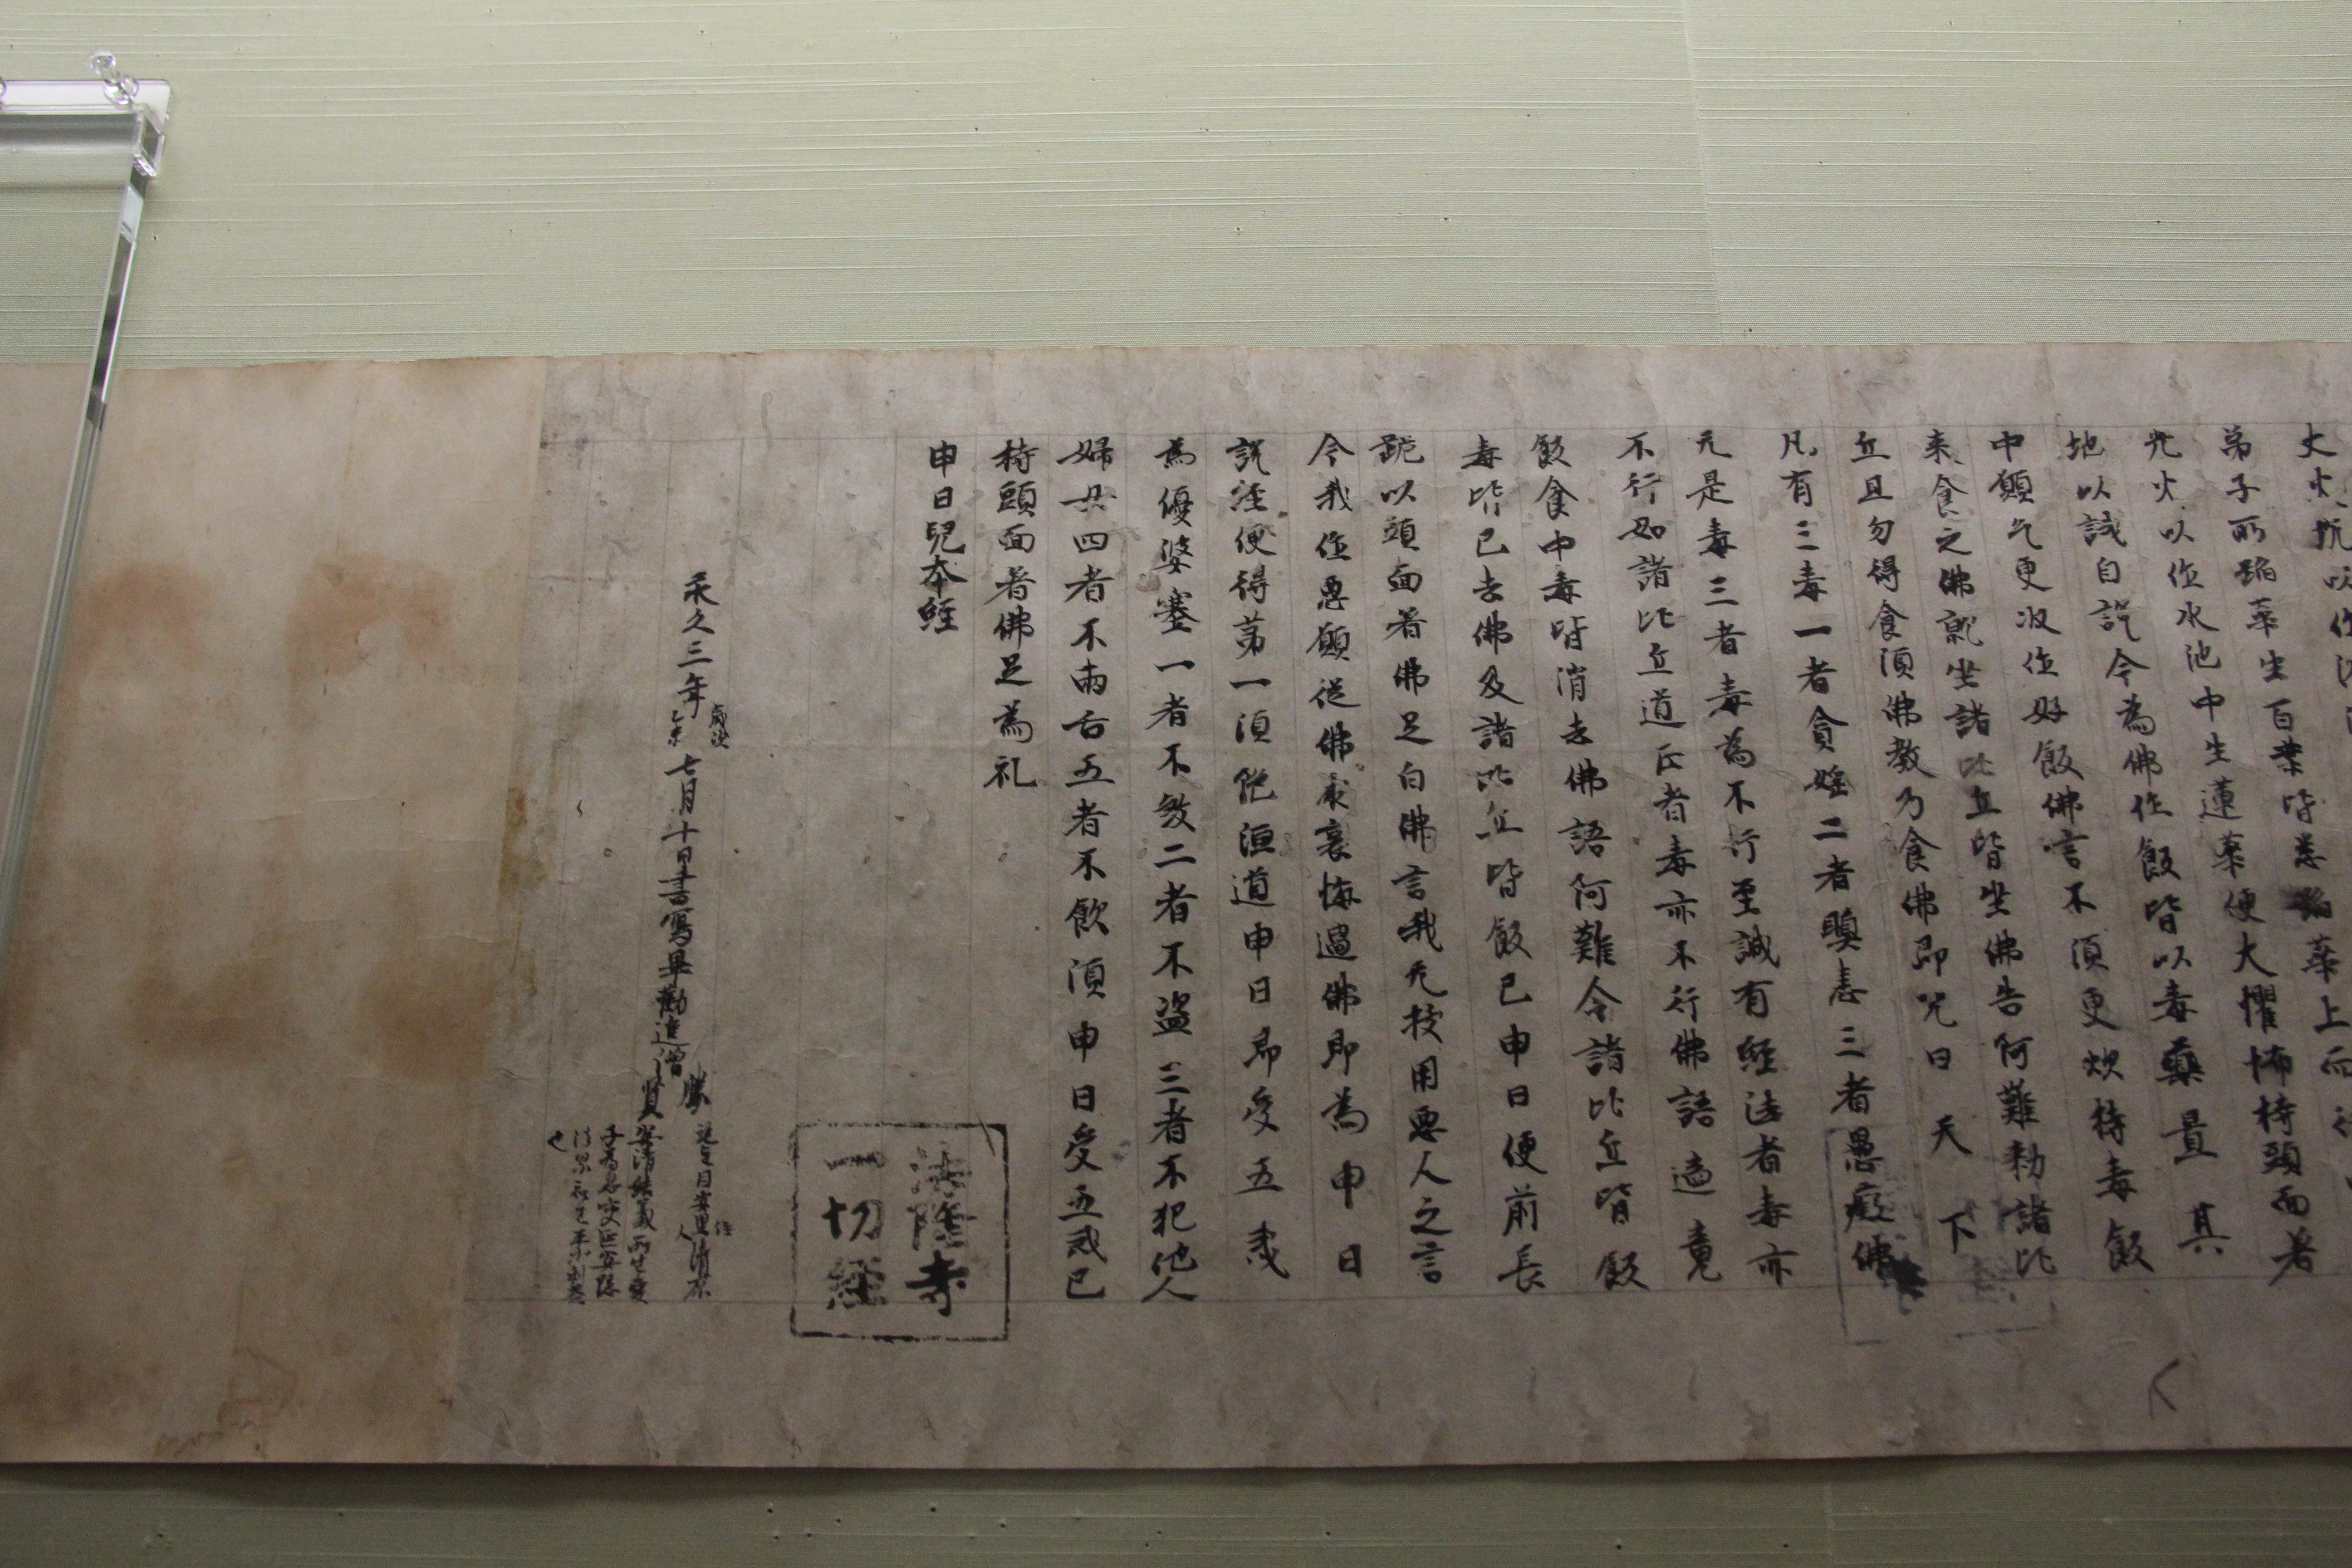 大火坑以作
弟子所蹈華生百葉皆悉蹈華上而
先火以作水池中生蓮華便大懼怖持頭面著
地以誠自説今為佛作飯皆以毒藥置其
中願乞更次作好飯佛言不須更炊持毒飯
来食之佛就坐諸比丘皆坐佛告阿難勅諸比
丘且勿得食須佛教乃食佛即咒曰天下
凡有三毒一者貪婬二者瞋恚三者愚癡佛
无是毒三者毒為不行至誠有經法者毒亦
不行如諸比丘道正者毒亦不行佛語適竟
飯食中毒皆消去佛語阿難令諸比丘皆飯
毒皆已去佛及諸比丘皆飯已申日便前長
跪以頭面著佛足白佛言我无狀用悪人之言
今我作悪願從佛求哀悔過佛即為申日
説經便得第一須陁洹道申日即受五戒
為優婆塞一者不煞二者不盗三者不犯他人
婦女四者不兩舌五者不飲酒申日受五戒已
持頭面著佛足為礼
申日兒本經
法隆寺
一切經
永久三年歳次乙未七月十日書寫畢勸進僧勝賢